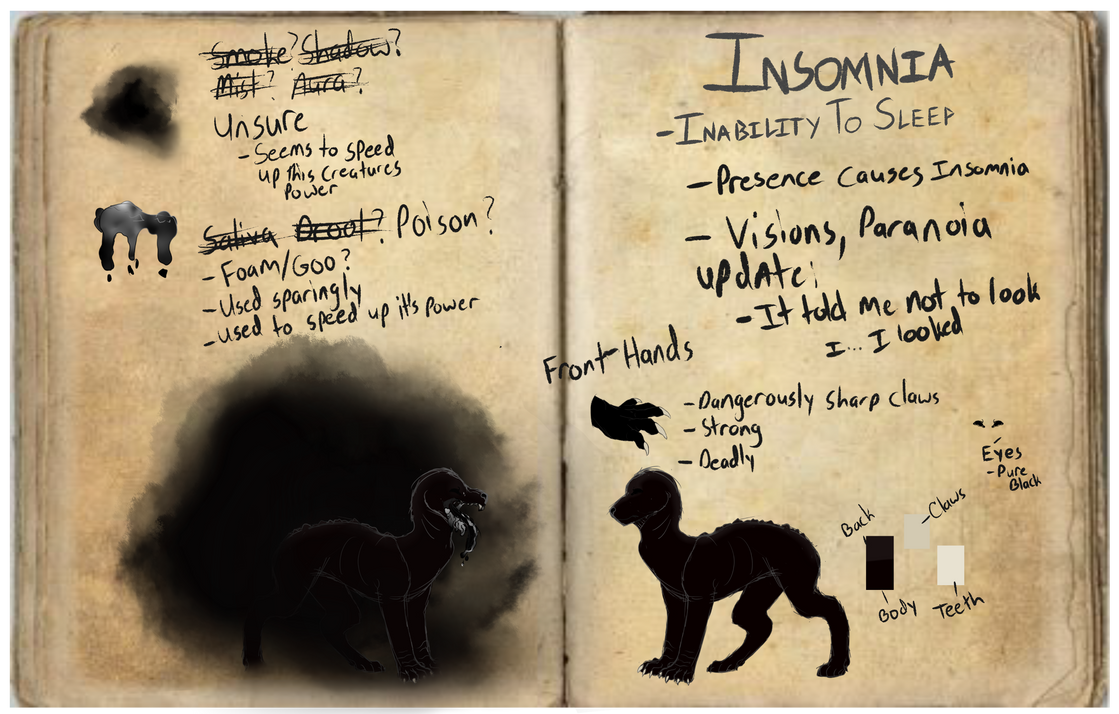 Smoke? Shadow?
Mist? Aura?
Unsure
- Seems to speed
up this creatures
Power
Saliva Drool? Poison?
- Foam/Goo?
- Used sparingly
- used to speed up it's power
INSOMNIA
- INABILITY TO SLEEP
- Presence causes Insomnia
- Visions, Paranoia
update:
- It told me not to look
I... I looked
Front Hands
- Dangerously sharp claws
- Strong
- Deadly
Eyes
- Pure
Black
Back
- Claws
Body
Teeth